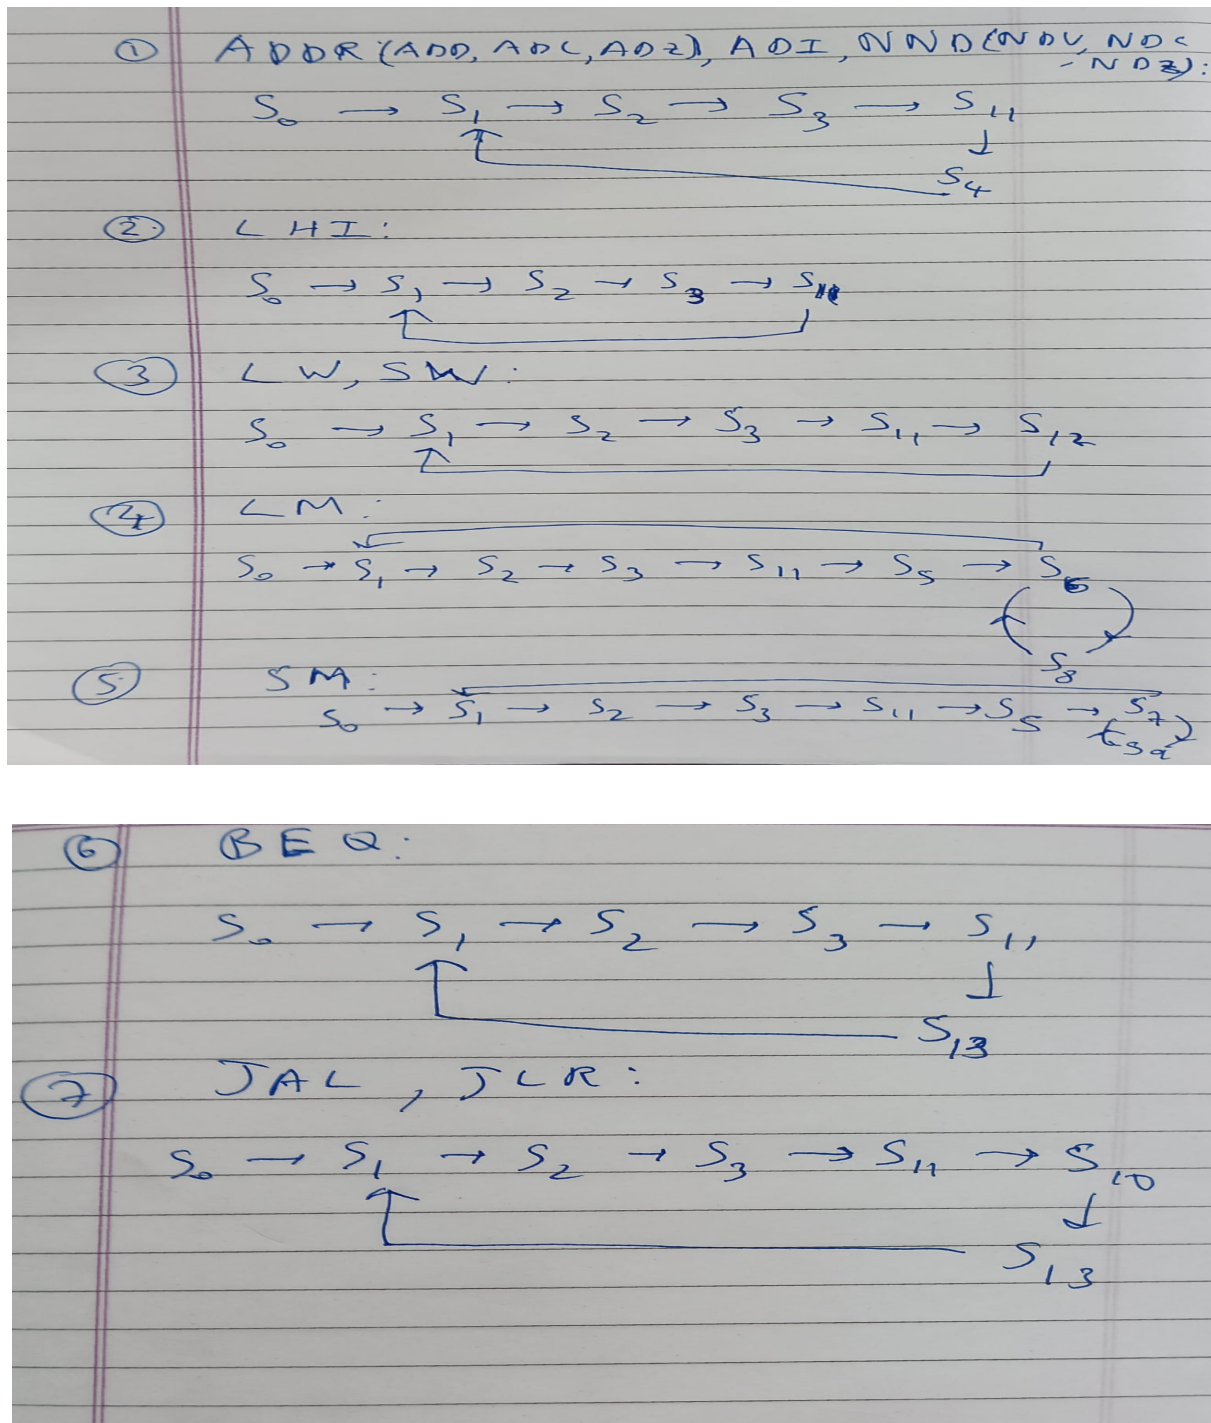 ① ADDR (ADD, ADC, ADZ), ADI, NND (NDU, NDC
- NDZ):
S₀ → S₁ → S₂ → S₃ → S₁₁
↓
S₄
② LHI:
S₀ → S₁ → S₂ → S₃ → S₁₁
③ LW, SW:
S₀ → S₁ → S₂ → S₃ → S₁₁ → S₁₂
④ LM:
S₀ → S₁ → S₂ → S₃ → S₁₁ → S₅ → S₆
S₈
⑤ SM:
S₀ → S₁ → S₂ → S₃ → S₁₁ → S₅ → S₇
S₉
⑥ BEQ:
S₀ → S₁ → S₂ → S₃ → S₁₁
↓
S₁₃
⑦ JAL, JLR:
S₀ → S₁ → S₂ → S₃ → S₁₁ → S₁₀
↓
S₁₃